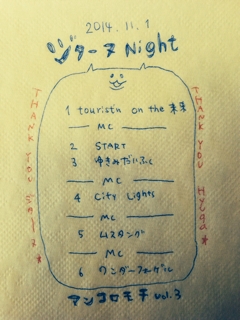 2014.11.1
ジターヌ Night
1 tourist in on the 未来
MC
2 START
3 ゆきみだいふく
MC
4 City Lights
MC
5 ムスタング
MC
6 ワンダーフォーゲル
アンコロモチ vol.3
THANK YOU
THANK YOU Hyuga*